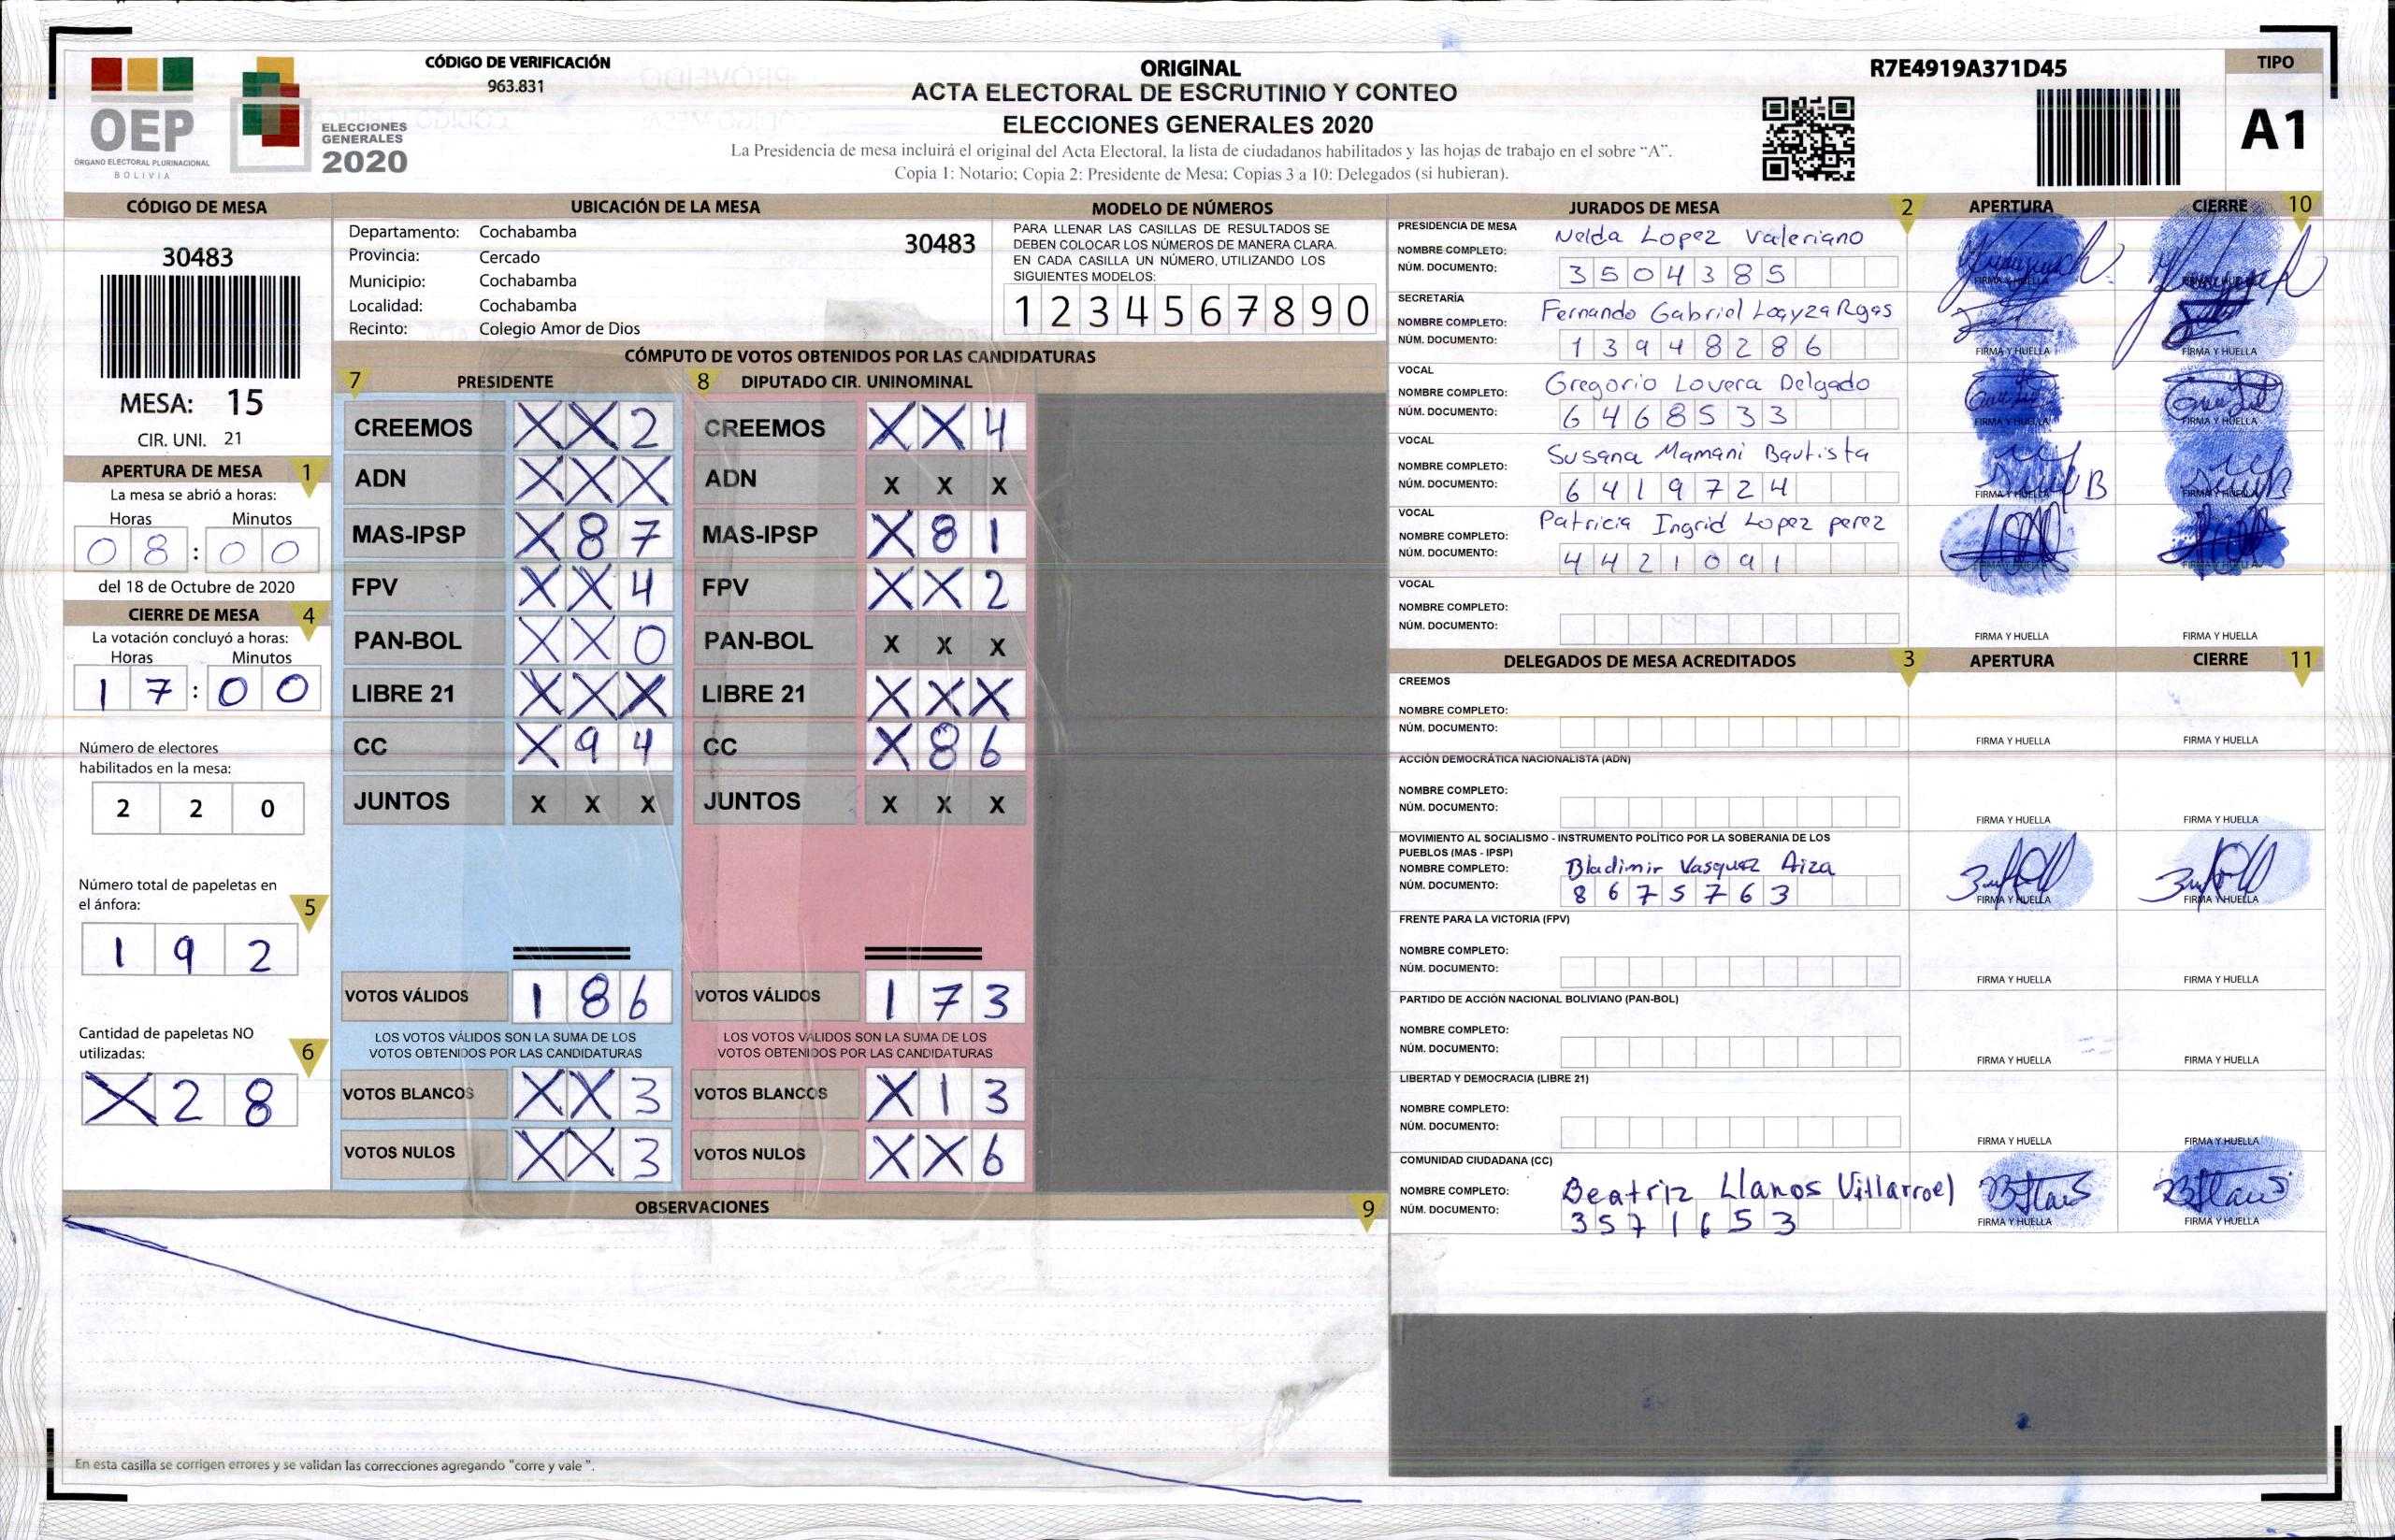 OEP
ÓRGANO ELECTORAL PLURINACIONAL
BOLIVIA
ELECCIONES
GENERALES
2020
CÓDIGO DE VERIFICACIÓN
963.831
ORIGINAL
ACTA ELECTORAL DE ESCRUTINIO Y CONTEO
ELECCIONES GENERALES 2020
La Presidencia de mesa incluirá el original del Acta Electoral, la lista de ciudadanos habilitados y las hojas de trabajo en el sobre “A”.
Copia 1: Notario; Copia 2: Presidente de Mesa; Copias 3 a 10: Delegados (si hubieran).
R7E4919A371D45
TIPO
A1
CÓDIGO DE MESA
30483
MESA: 15
CIR. UNI. 21
APERTURA DE MESA 1
La mesa se abrió a horas:
Horas Minutos
0 8 : 0 0
del 18 de Octubre de 2020
CIERRE DE MESA 4
La votación concluyó a horas:
Horas Minutos
1 7 : 0 0
Número de electores
habilitados en la mesa:
2 2 0
Número total de papeletas en
el ánfora: 5
1 9 2
Cantidad de papeletas NO
utilizadas: 6
X 2 8
UBICACIÓN DE LA MESA
Departamento: Cochabamba 30483
Provincia: Cercado
Municipio: Cochabamba
Localidad: Cochabamba
Recinto: Colegio Amor de Dios
MODELO DE NÚMEROS
PARA LLENAR LAS CASILLAS DE RESULTADOS SE
DEBEN COLOCAR LOS NÚMEROS DE MANERA CLARA.
EN CADA CASILLA UN NÚMERO, UTILIZANDO LOS
SIGUIENTES MODELOS:
1 2 3 4 5 6 7 8 9 0
CÓMPUTO DE VOTOS OBTENIDOS POR LAS CANDIDATURAS
7 PRESIDENTE
CREEMOS X X 2
ADN X X X
MAS-IPSP X 8 7
FPV X X 4
PAN-BOL X X 0
LIBRE 21 X X X
CC X 9 4
JUNTOS X X X
VOTOS VÁLIDOS 1 8 6
LOS VOTOS VÁLIDOS SON LA SUMA DE LOS
VOTOS OBTENIDOS POR LAS CANDIDATURAS
VOTOS BLANCOS X X 3
VOTOS NULOS X X 3
8 DIPUTADO CIR. UNINOMINAL
CREEMOS X X 4
ADN X X X
MAS-IPSP X 8 1
FPV X X 2
PAN-BOL X X X
LIBRE 21 X X X
CC X 8 6
JUNTOS X X X
VOTOS VÁLIDOS 1 7 3
LOS VOTOS VÁLIDOS SON LA SUMA DE LOS
VOTOS OBTENIDOS POR LAS CANDIDATURAS
VOTOS BLANCOS X 1 3
VOTOS NULOS X X 6
OBSERVACIONES 9
En esta casilla se corrigen errores y se validan las correcciones agregando "corre y vale ".
JURADOS DE MESA 2 APERTURA CIERRE 10
PRESIDENCIA DE MESA
NOMBRE COMPLETO: Nelda Lopez Valeriano
NÚM. DOCUMENTO: 3 5 0 4 3 8 5
FIRMA Y HUELLA
SECRETARÍA
NOMBRE COMPLETO: Fernando Gabriel Loayza Rgas
NÚM. DOCUMENTO: 1 3 9 4 8 2 8 6
FIRMA Y HUELLA FIRMA Y HUELLA
VOCAL
NOMBRE COMPLETO: Gregorio Lovera Delgado
NÚM. DOCUMENTO: 6 4 6 8 5 3 3
FIRMA Y HUELLA FIRMA Y HUELLA
VOCAL
NOMBRE COMPLETO: Susana Mamani Bautista
NÚM. DOCUMENTO: 6 4 1 9 7 2 4
FIRMA Y HUELLA FIRMA Y HUELLA
VOCAL
NOMBRE COMPLETO: Patricia Ingrid Lopez perez
NÚM. DOCUMENTO: 4 4 2 1 0 9 1
FIRMA Y HUELLA FIRMA Y HUELLA
VOCAL
NOMBRE COMPLETO:
NÚM. DOCUMENTO:
FIRMA Y HUELLA FIRMA Y HUELLA
DELEGADOS DE MESA ACREDITADOS 3 APERTURA CIERRE 11
CREEMOS
NOMBRE COMPLETO:
NÚM. DOCUMENTO:
FIRMA Y HUELLA FIRMA Y HUELLA
ACCIÓN DEMOCRÁTICA NACIONALISTA (ADN)
NOMBRE COMPLETO:
NÚM. DOCUMENTO:
FIRMA Y HUELLA FIRMA Y HUELLA
MOVIMIENTO AL SOCIALISMO - INSTRUMENTO POLÍTICO POR LA SOBERANIA DE LOS
PUEBLOS (MAS - IPSP)
NOMBRE COMPLETO: Bladimir Vasquez Aiza
NÚM. DOCUMENTO: 8 6 7 5 7 6 3
FIRMA Y HUELLA FIRMA Y HUELLA
FRENTE PARA LA VICTORIA (FPV)
NOMBRE COMPLETO:
NÚM. DOCUMENTO:
FIRMA Y HUELLA FIRMA Y HUELLA
PARTIDO DE ACCIÓN NACIONAL BOLIVIANO (PAN-BOL)
NOMBRE COMPLETO:
NÚM. DOCUMENTO:
FIRMA Y HUELLA FIRMA Y HUELLA
LIBERTAD Y DEMOCRACIA (LIBRE 21)
NOMBRE COMPLETO:
NÚM. DOCUMENTO:
FIRMA Y HUELLA FIRMA Y HUELLA
COMUNIDAD CIUDADANA (CC)
NOMBRE COMPLETO: Beatriz Llanos Villarroel
NÚM. DOCUMENTO: 3 5 7 1 6 5 3
FIRMA Y HUELLA FIRMA Y HUELLA